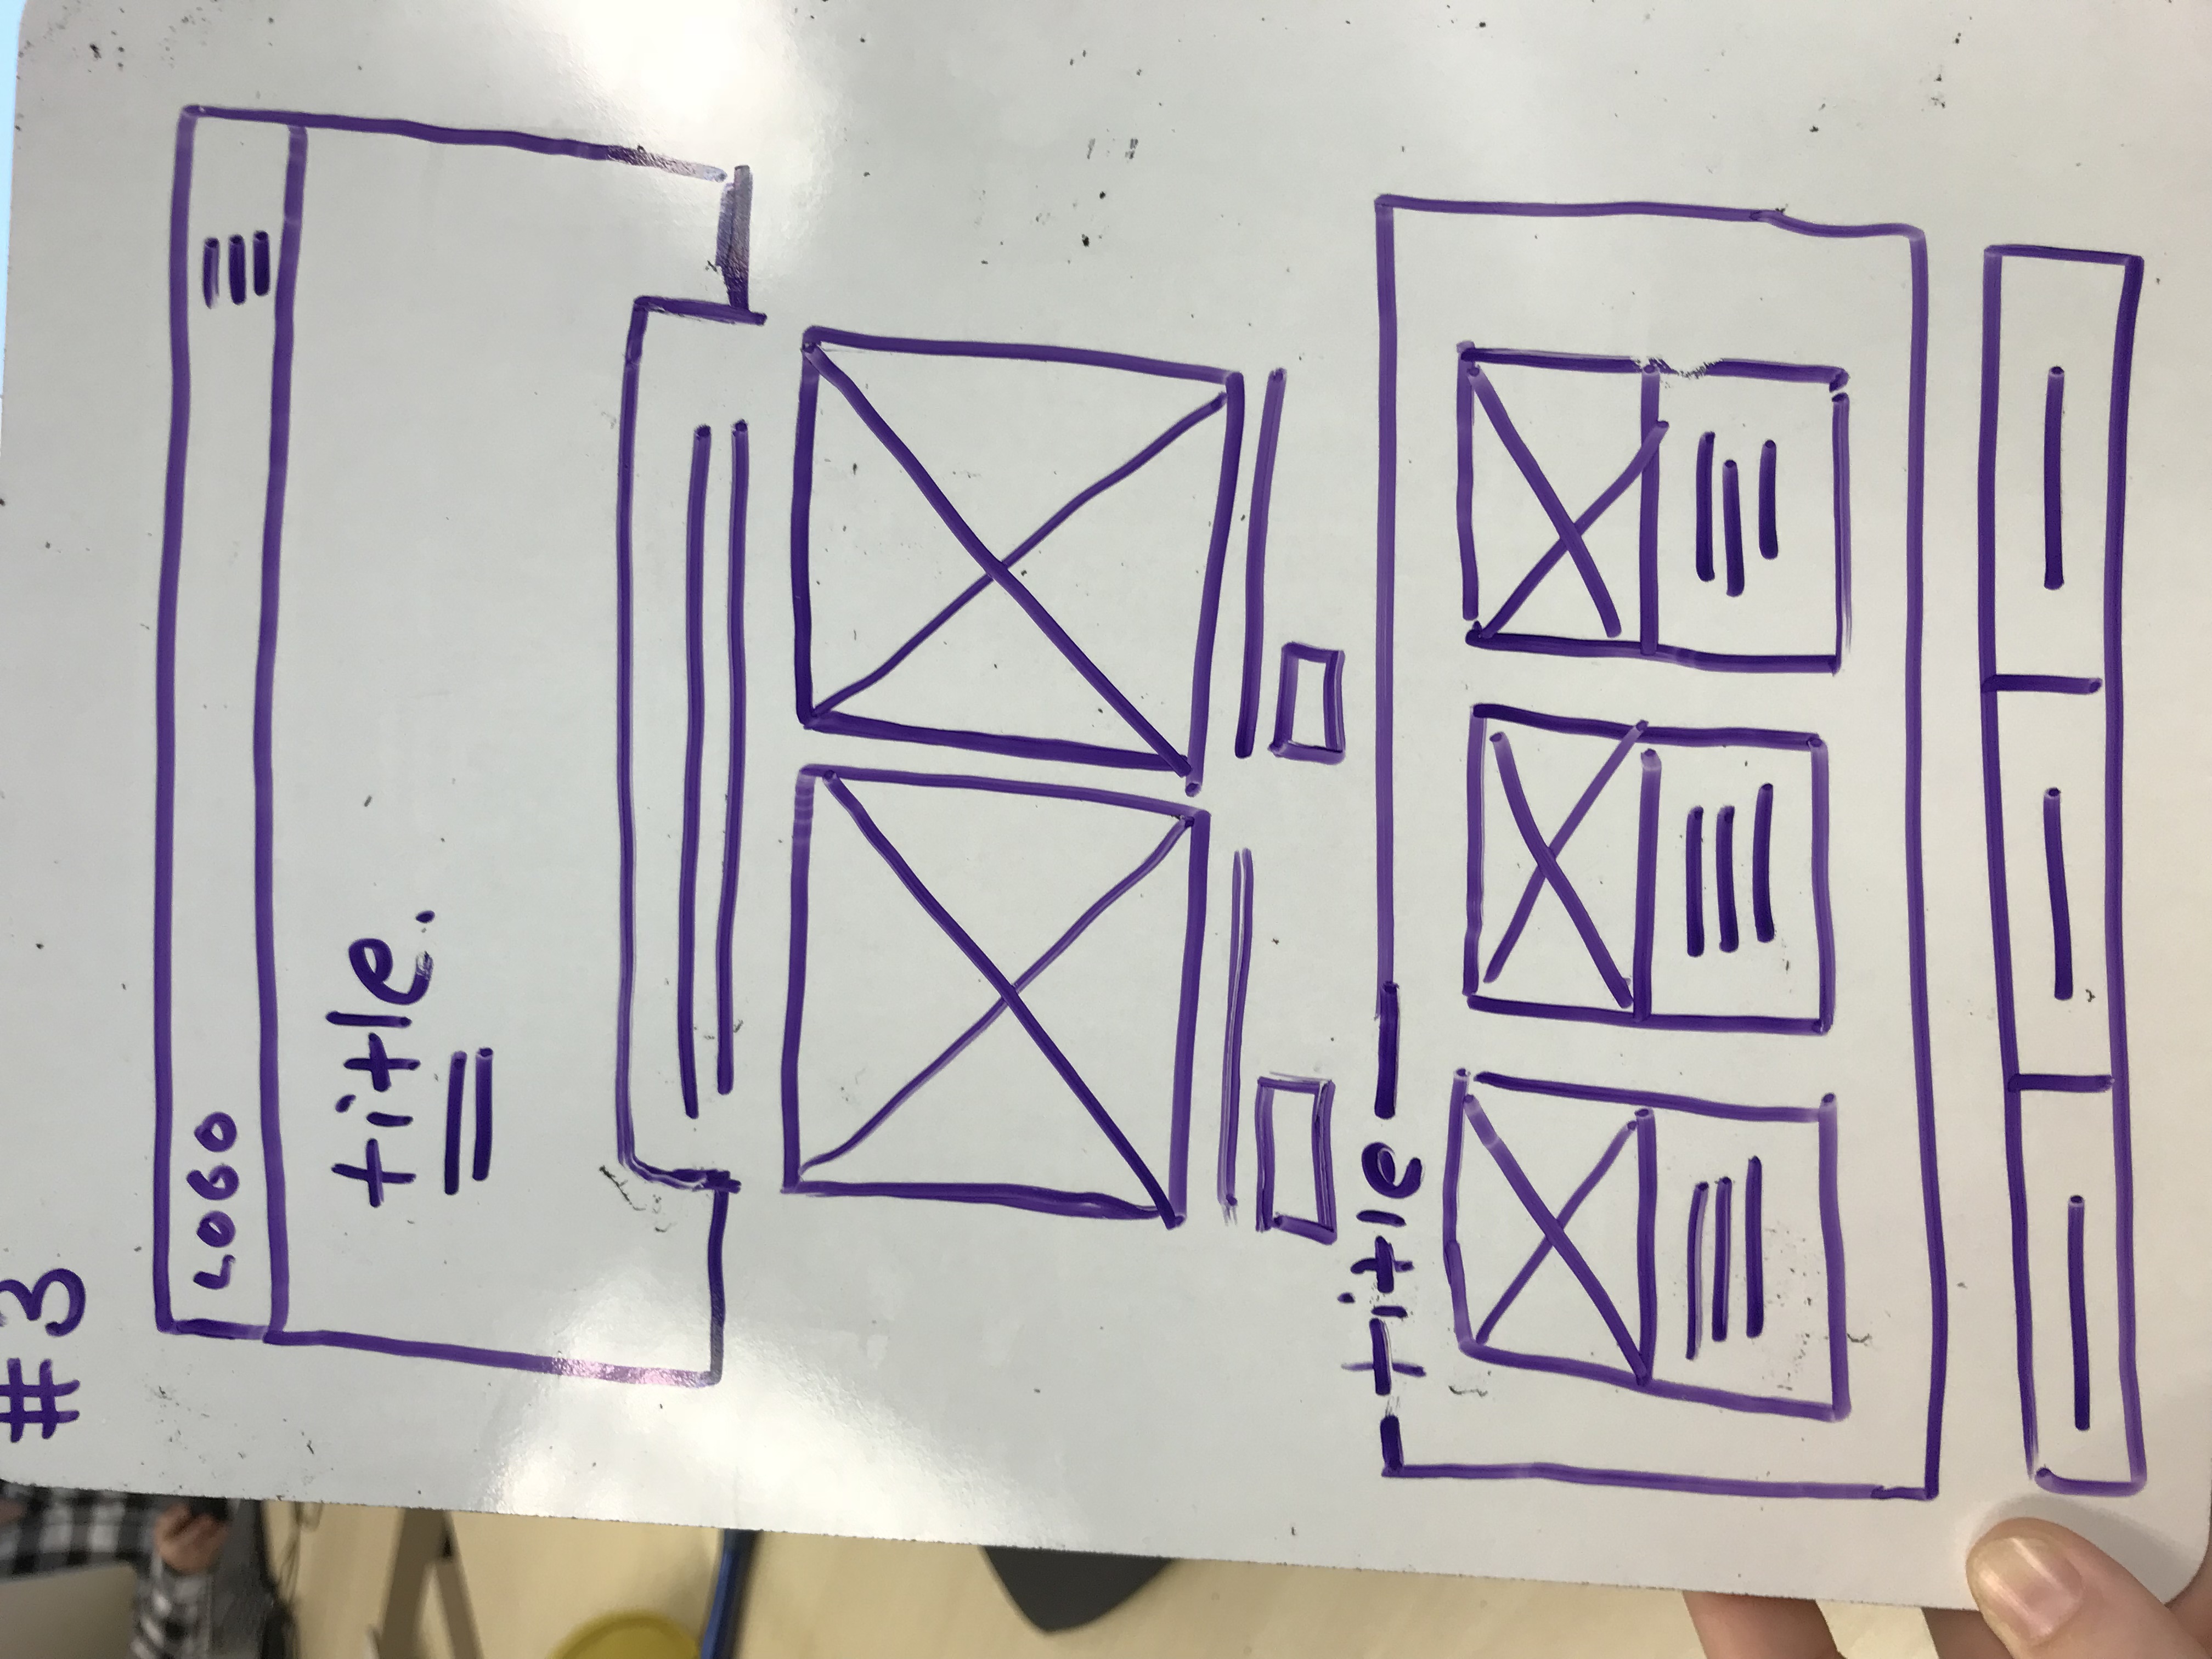 #3
LOGO
title.
title